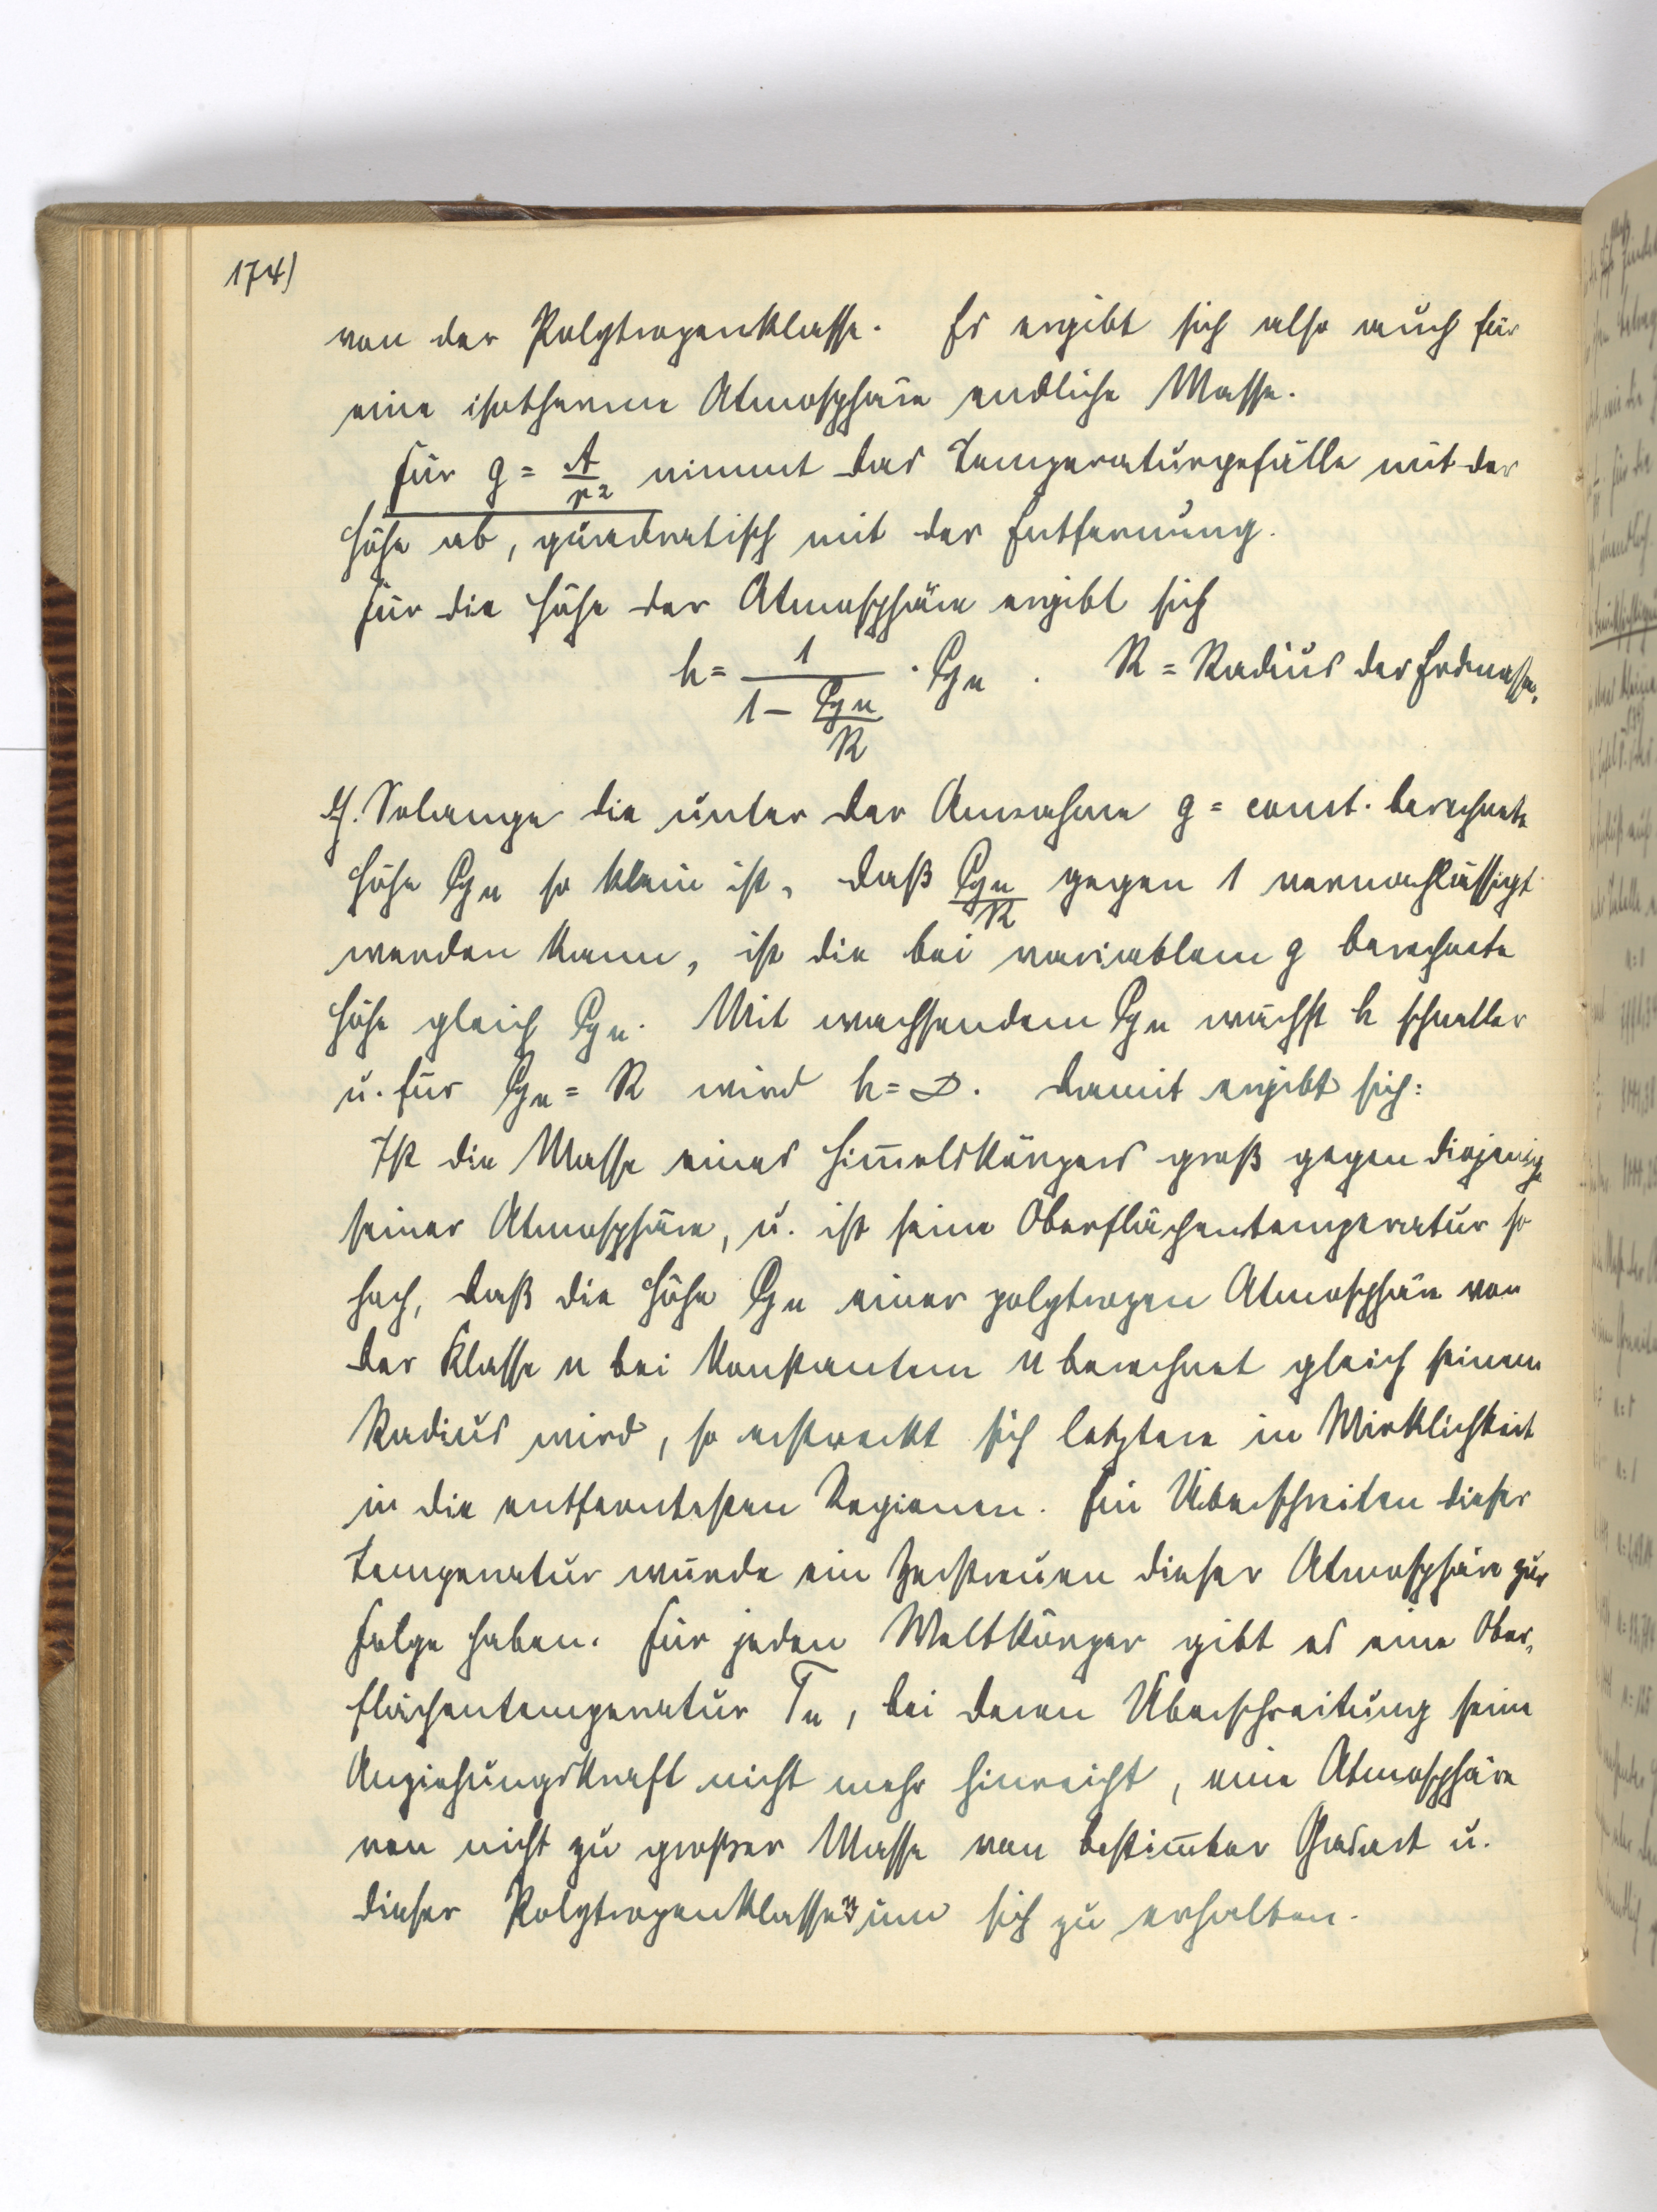 174)
von der Polytropenklasse. Es ergibt sich also auch für
eine isotherme Atmosphäre endliche Masse.
Für g = A/r² nimmt das Temperaturgefälle mit der
Höhe ab, quadratisch mit der Entfernung.
Für die Höhe der Atmosphäre ergibt sich
h = 1/(1 − ℭyn/R) · ℭyn . R = Radius der Erdmasse.
D.h. Solange die unter der Annahme g = const. berechnete
Höhe ℭyn so klein ist, daß ℭyn/R gegen 1 vernachlässigt
werden kann, ist die bei variablem g berechnete
Höhe gleich ℭyn. Mit wachsendem ℭyn wächst h schneller
u. für ℭyn = R wird h = ∞. Damit ergibt sich:
Ist die Masse eines Him̅elskörpers groß gegen diejenige
seiner Atmosphäre, u. ist seine Oberflächentemperatur so
hoch, daß die Höhe ℭyn einer polytropen Atmosphäre von
der Klasse n bei konstantem n berechnet gleich seinem
Radius wird, so erstreckt sich letztere in Wirklichkeit
in die entferntesten Regionen. Ein Überschreiten dieser
Temperatur würde ein Zerstreuen dieser Atmosphäre zur
Folge haben. Für jeden Weltkörper gibt es eine Ober-
flächentemperatur Tn, bei deren Überschreitung seine
Anziehungskraft nicht mehr hinreicht, eine Atmosphäre
von nicht zu großer Masse von bestim̅ter Gasart u.
dieser Polytropenklasse n um sich zu erhalten.